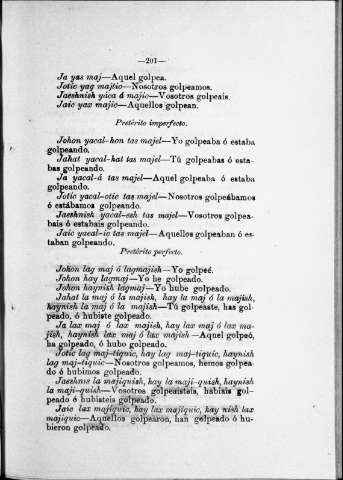 —201—
Ja yas maj—Aquel golpea.
Jotic yag majtic—Nosotros golpeamos.
Jaeshnish yáca á majic—Vosotros golpeais.
Jaic yax majic—Aquellos golpean.
Pretérito imperfecto.
Johon yacal-hon tas majel—Yo golpeaba ó estaba
golpeando.
Jahat yacal-hat tas majel—Tú golpeabas ó esta-
bas golpeando.
Ja yacal-á tas majel—Aquel golpeaba ó estaba
golpeando.
Jotic yacal-otic tas majel—Nosotros golpeábamos
ó estábamos golpeando.
Jaeshnish yacal-esh tas majel—Vosotros golpea-
bais ó estabais golpeando.
Jaic yacal-ic tas majel—Aquellos golpeaban ó es-
taban golpeando.
Pretérito perfecto.
Johon lag maj ó lagmajish—Yo golpeé.
Johon hay lagmaj—Yo he golpeado.
Johon haynish lagmaj—Yo hube golpeado.
Jahat la maj ó la majish, hay la maj ó la majish,
haynish la maj ó la majish—Tú golpeaste, has gol-
peado, ó hubiste golpeado.
Ja lax maj ó lax majish, hay lax maj ó lax ma-
jish, haynish lax maj ó lax majish—Aquel golpeó,
ha golpeado, ó hubo golpeado.
Jotic lag maj-tiquic, hay lag maj-tiquic, haynish
lag maj-tiquic—Nosotros golpeamos, hemos golpea-
do ó hubimos golpeado.
Jaeshnis la majiquish, hay la maji-quish, haynish
la maji-quish—Vosotros golpeasteis, habiais gol-
peado ó hubisteis golpeado.
Jaic lax majiquic, hay lax majiquic, hay nish lax
majiquic—Aquellos golpearon, han golpeado ó hu-
bieron golpeado.